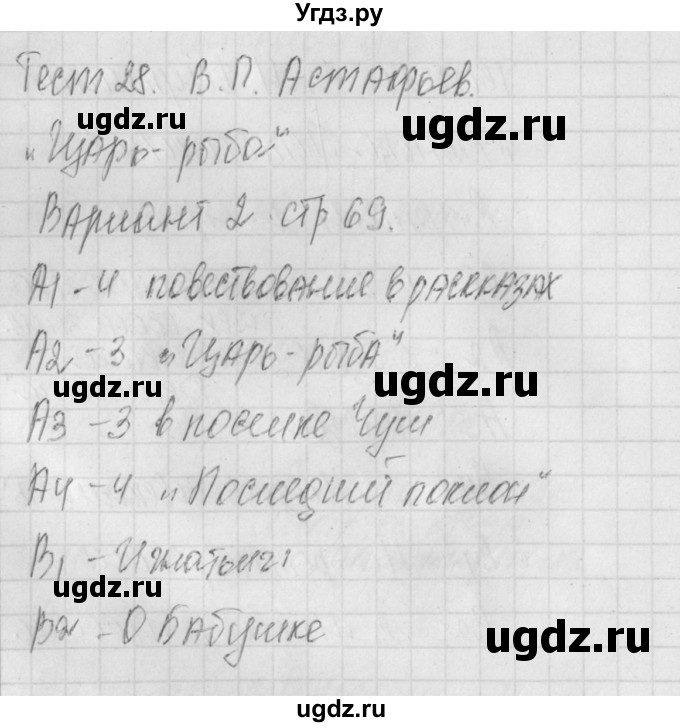 Угдз.ру
Тест 28. В.П. Астафьев.
ugdz.ru ugdz.ru
"Царь-рыба"
Вариант 2 стр 69.
А1 - 4 повествование в рассказах
А2 - 3 "Царь-рыба"
ugdz.ru ugdz.ru
А3 - 3 в поселке Чуш
А4 - 4 "Последний поклон"
В1 - Игнатьич
ugdz.ru ugdz.ru
В2 - О Бабушке
ugdz.ru